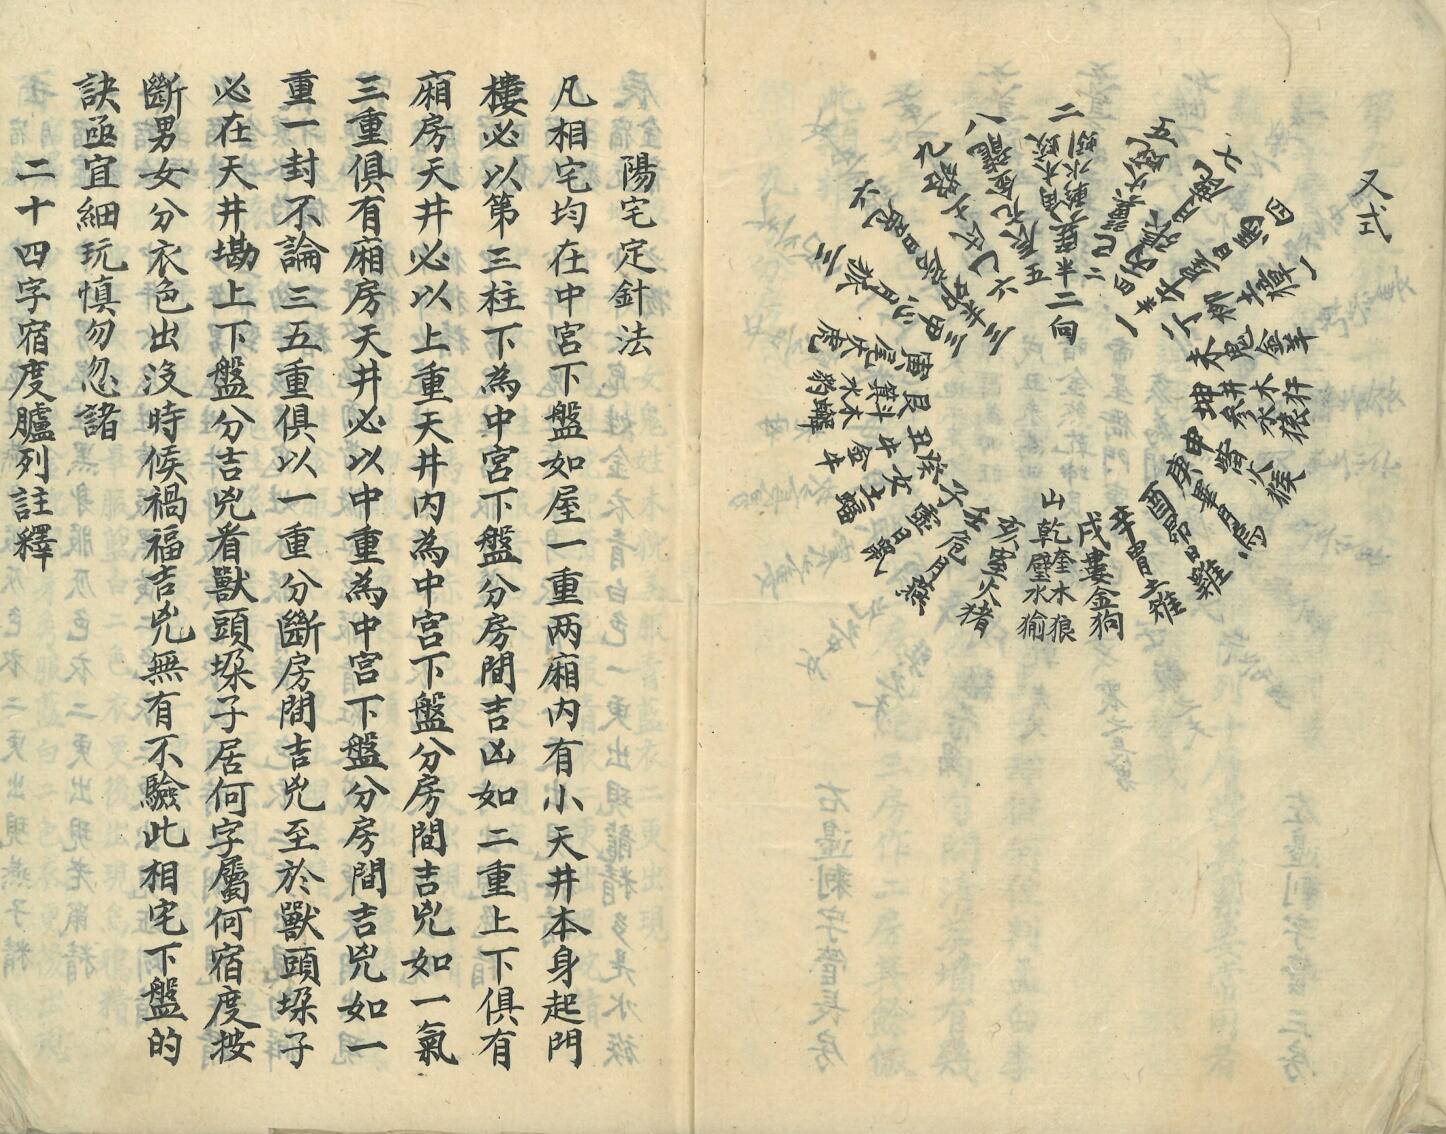 又式
二
角木蛟
軫水蚓
巽半二向
五
巳翼火蛇
七
丙張月鹿
四
午星日馬
一
丁柳土獐
未鬼金羊
坤井木犴
參水猿
申觜火猴
庚畢月烏
酉昴日雞
辛胃土雉
戌婁金狗
山
乾奎木狼
璧水㺄
亥室火猪
壬危月燕
子虛日鼠
癸女土蝠
丑牛金牛
艮斗木獬
箕水豹
寅尾火虎
三
甲心月狐
六
卯房日兔
九
乙氐土貉
八
辰亢金龍
陽宅定針法
凡相宅均在中宮下盤如屋一重两廂内有小天井本身起門
樓必以第三柱下為中宮下盤分房間吉凶如二重上下俱有
廂房天井必以上重天井内為中宮下盤分房間吉兇如一氣
三重俱有廂房天井必以中重為中宮下盤分房間吉兇如一
重一封不論三五重俱以一重分斷房間吉兇至於獸頭垜子
必在天井墈上下盤分吉兇看獸頭垜子居何字屬何宿度按
斷男女分衣色出没時候禍福吉兇無有不驗此相宅下盤的
訣亟宜細玩慎勿忽諸
二十四字宿度臚列註釋